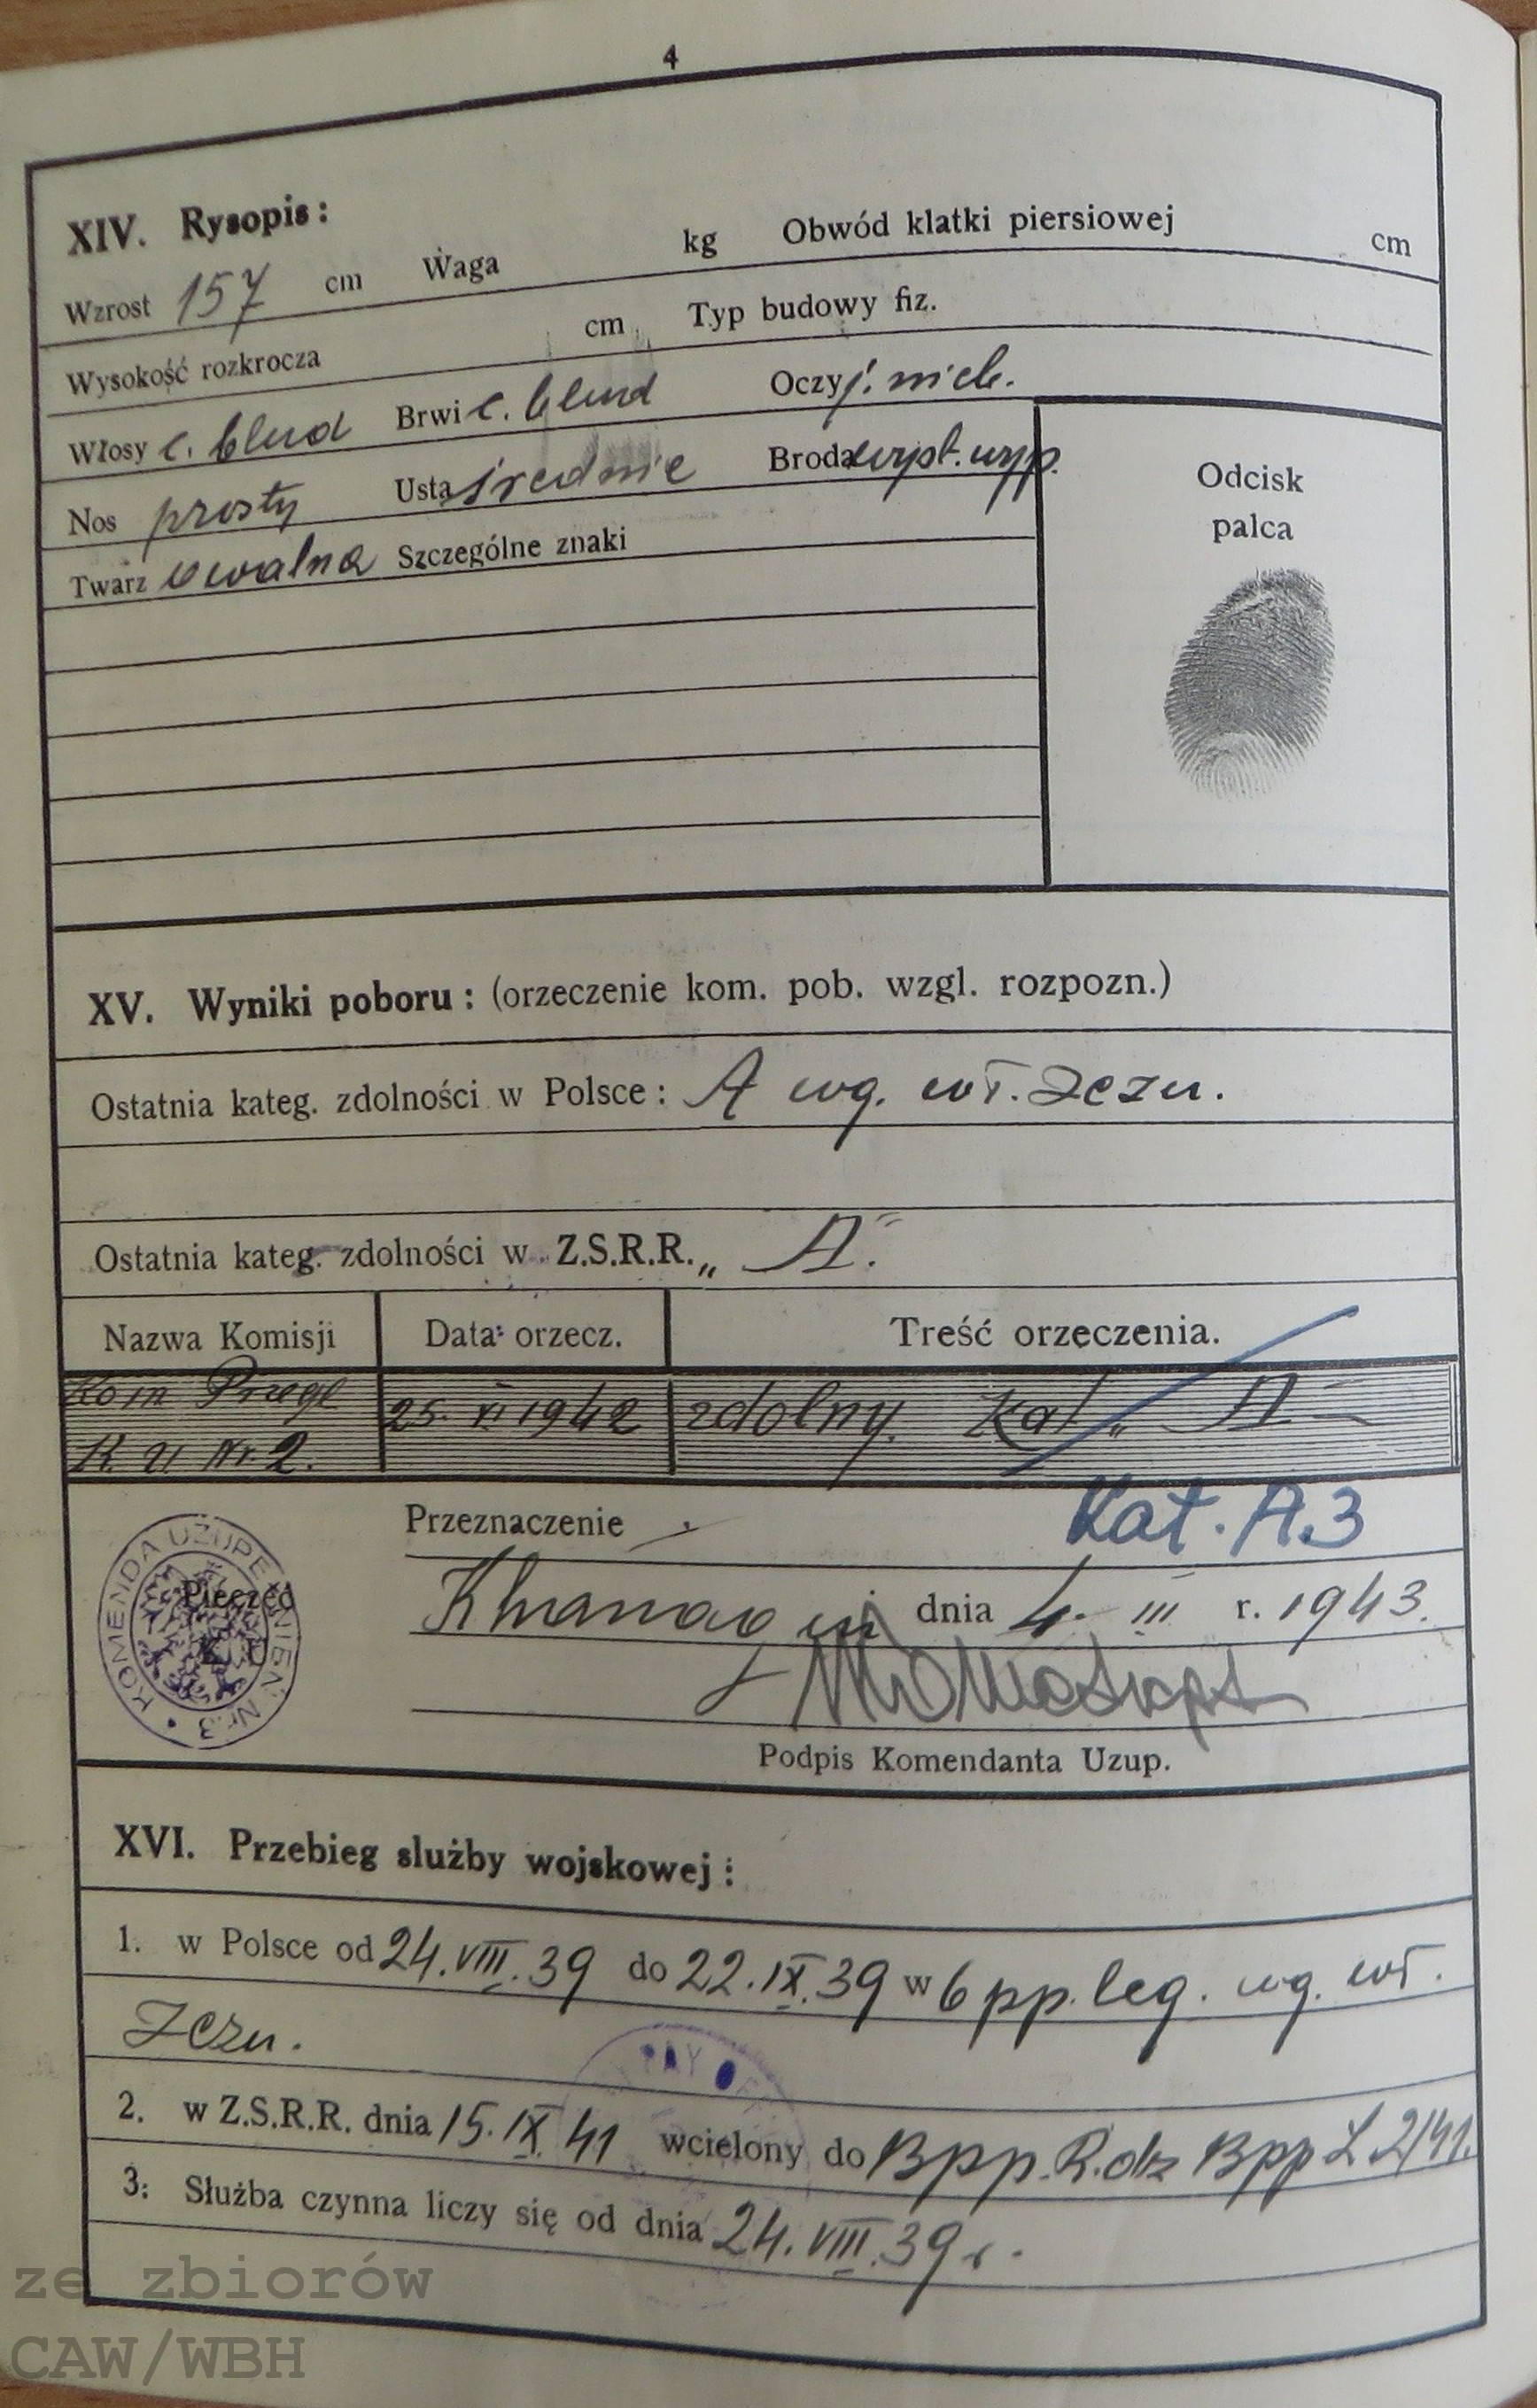 4
XIV. Rysopis:
Wzrost 157 cm Waga kg Obwód klatki piersiowej cm
Wysokość rozkrocza cm Typ budowy fiz.
Włosy c. blond Brwi c. blond Oczy j. nieb.
Nos prosty Usta średnie Broda wyp.
Twarz owalna Szczególne znaki
Odcisk
palca
XV. Wyniki poboru: (orzeczenie kom. pob. wzgl. rozpozn.)
Ostatnia kateg. zdolności w Polsce: A wg. wł. zezn.
Ostatnia kateg. zdolności w Z.S.R.R. „A"
Nazwa Komisji Data orzecz. Treść orzeczenia.
Kom Przegl 25. VI 1942 zdolny. Kat „A"
K. U. Nr. 2.
Przeznaczenie Kat. A3
KOMENDA UZUPEŁNIEŃ Nr. 3
Pieczęć
K U
dnia 4. III r. 1943.
Podpis Komendanta Uzup.
XVI. Przebieg służby wojskowej:
1. w Polsce od 24. VIII. 39 do 22. IX. 39 w 6 pp. leg. wg. wł.
zezn.
PAY
2. w Z.S.R.R. dnia 15. IX. 41 wcielony do 13 pp. R. dz 13 pp L 2/41.
3. Służba czynna liczy się od dnia 24. VIII. 39 r.
ze zbiorów
CAW/WBH